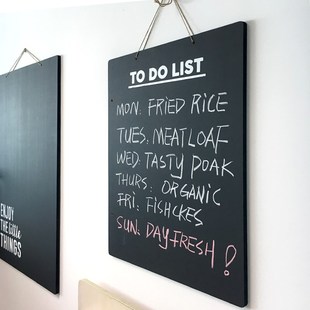 TO DO LIST
MON. FRIED RICE
TUES: MEATLOAF
WED: TASTY DOAK
THURS: ORGANIC
FRI: FISHCKES
SUN. DAYFRESH!
ENJOY
THE little
THINGS